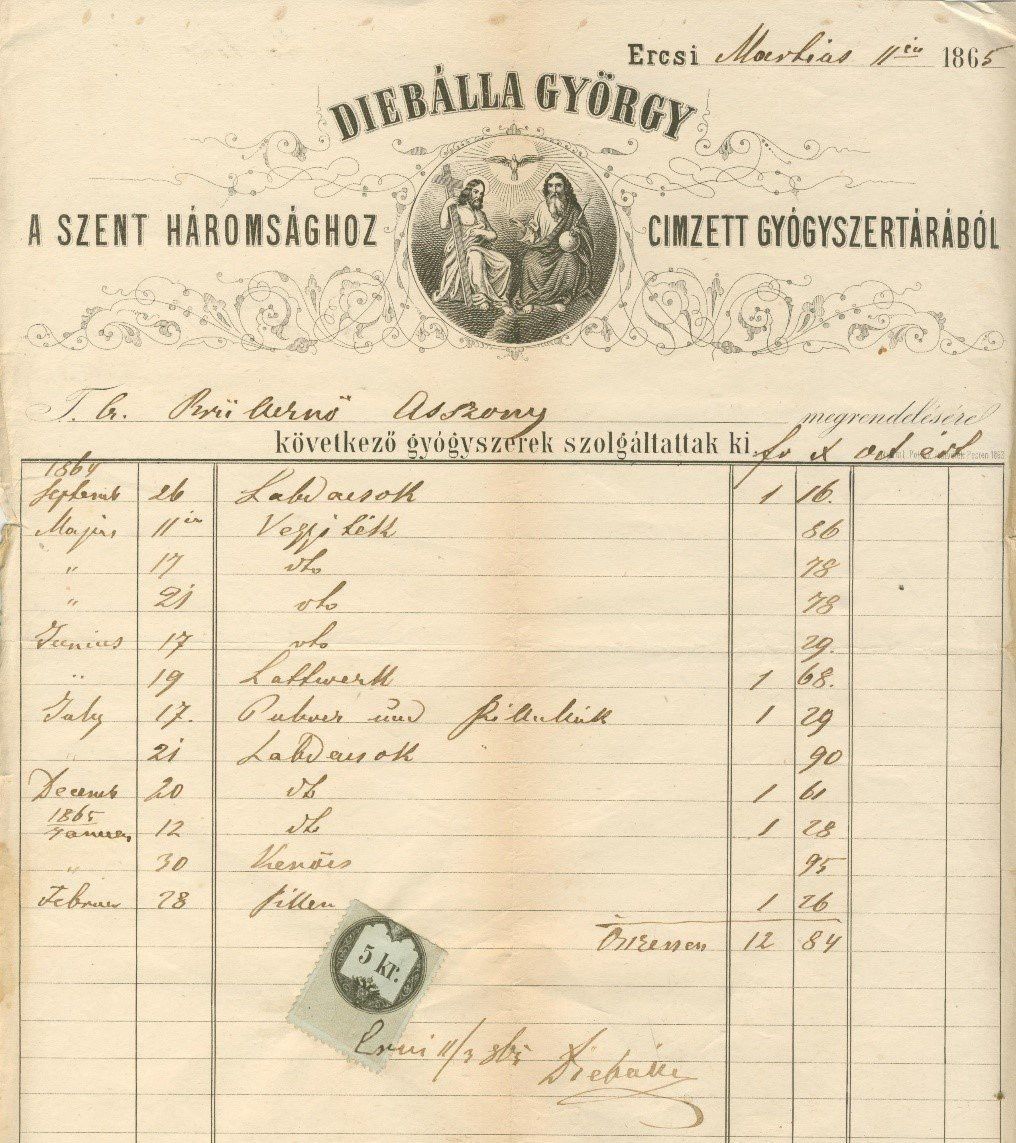 Ercsi Martius 11én 1865
DIEBÁLLA GYÖRGY
A SZENT HÁROMSÁGHOZ CIMZETT GYÓGYSZERTÁRÁBÓL
Asszony megrendelésére
következő gyógyszerek szolgáltattak ki
1864
Septemb 26 Labdacsok 1 16.
Majus 11én 86
" 17 dto 78
" 21 dto 78
Junius 17 dto 29.
" 19 Lattwerk 1 68.
July 17. Pulver und 1 29
" 21 Labdacsok 90
Decemb 20 dto 1 61
1865
Januar 12 dto 1 28
" 30 Kenőcs 95
Februar 28 Pillen 1 26
Összessen 12 84
5 kr.
Ercsi 11/3 865 Diebálla